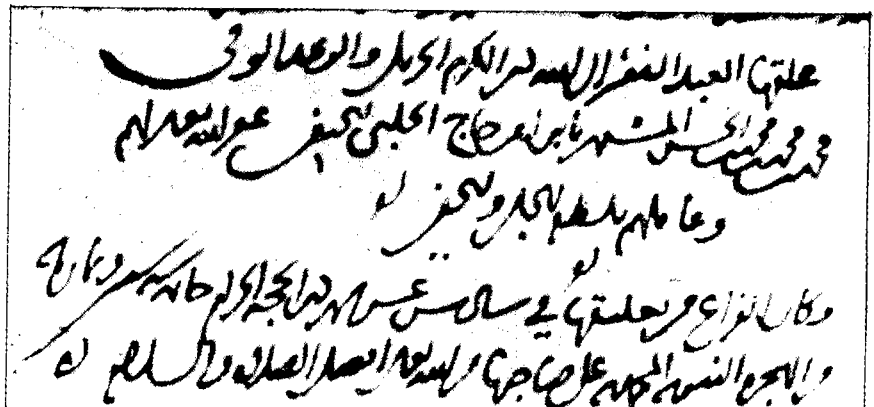 علقها العبد الفقير الى الله ذي الكرم الجزيل والوعد الوفي
محمد بن محمد بن محمد بن الحسن المشتهر بابن امير حاج الحلبي الحنفي عفر الله تعالى لهم
وعاملهم بلطفه الجلي والخفي
وكان الفراغ من تعليقها في سادس عشر شهر ذي الحجة الحرام خاتمة سنة
من الهجرة النبوية المحمدية على صاحبها من الله تعالى افضل الصلاة والسلام